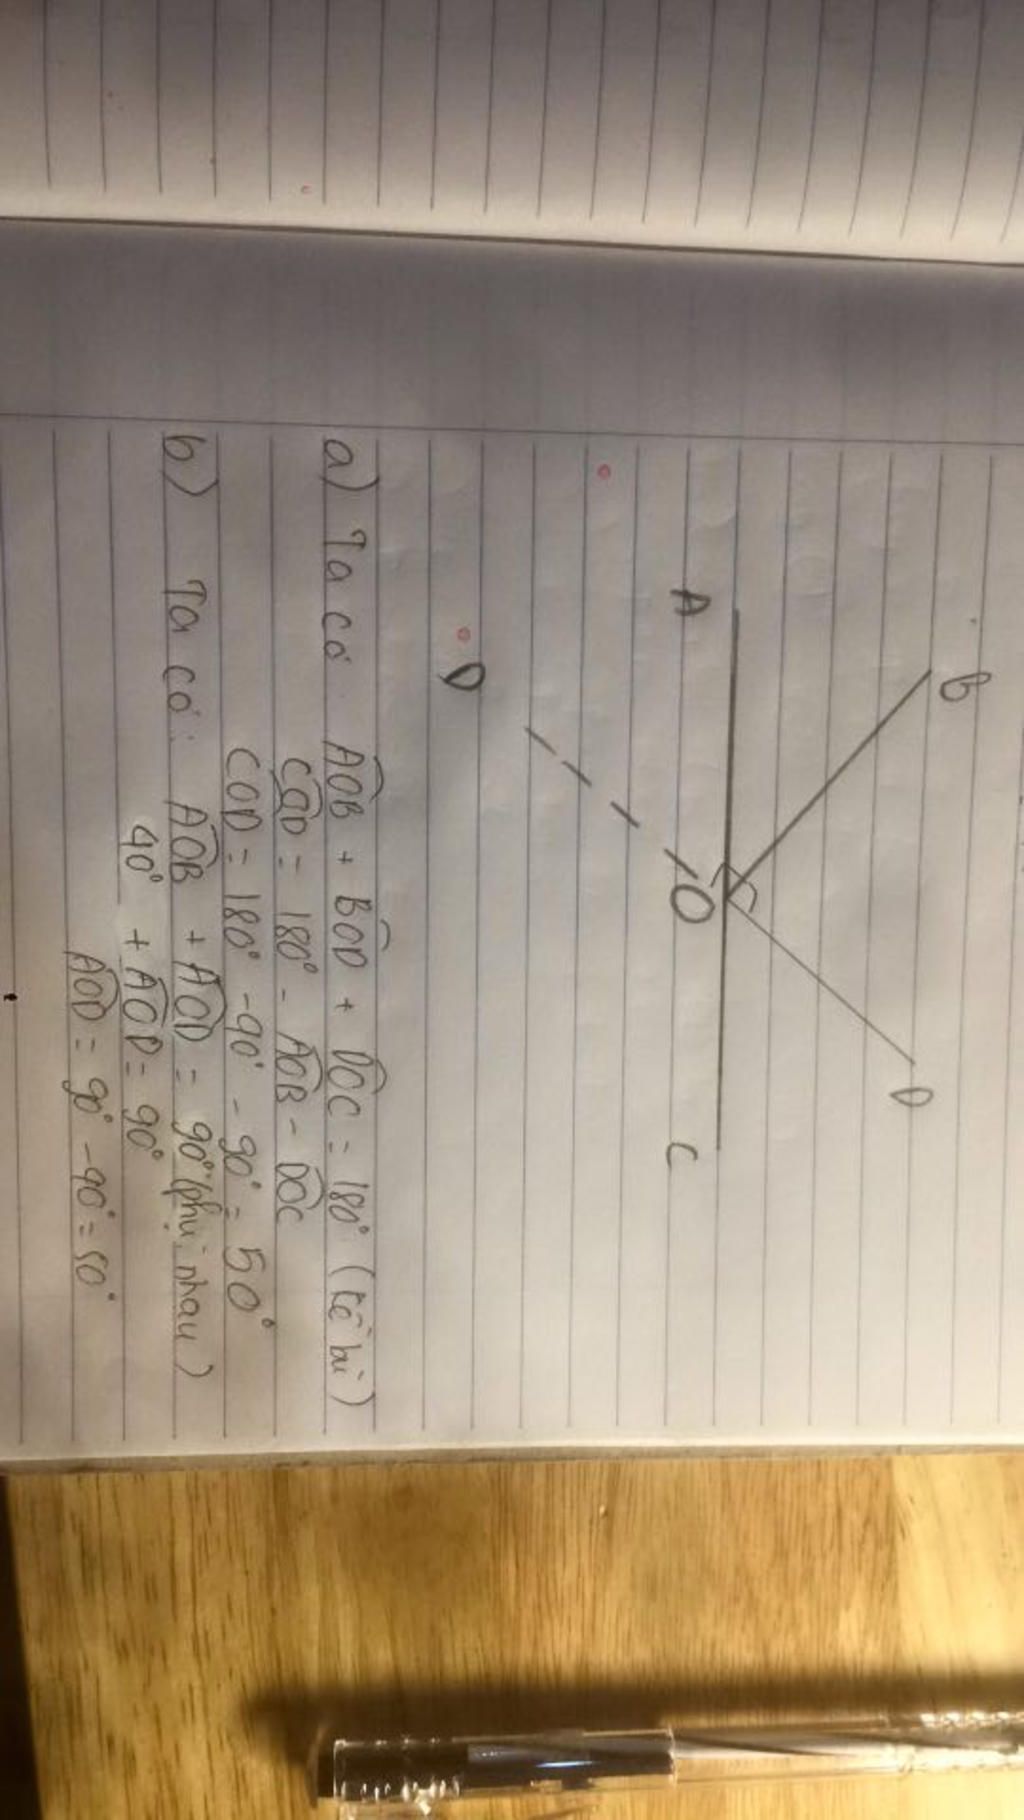 B
D
A
O
C
D
a) Ta có: AOB + BOD + DOC = 180° (kề bù)
COD = 180° - AOB - DOC
COD = 180° - 40° - 90° = 50°
b) Ta có: AOB + AOD = 90° (phụ nhau)
40° + AOD = 90°
AOD = 90° - 40° = 50°